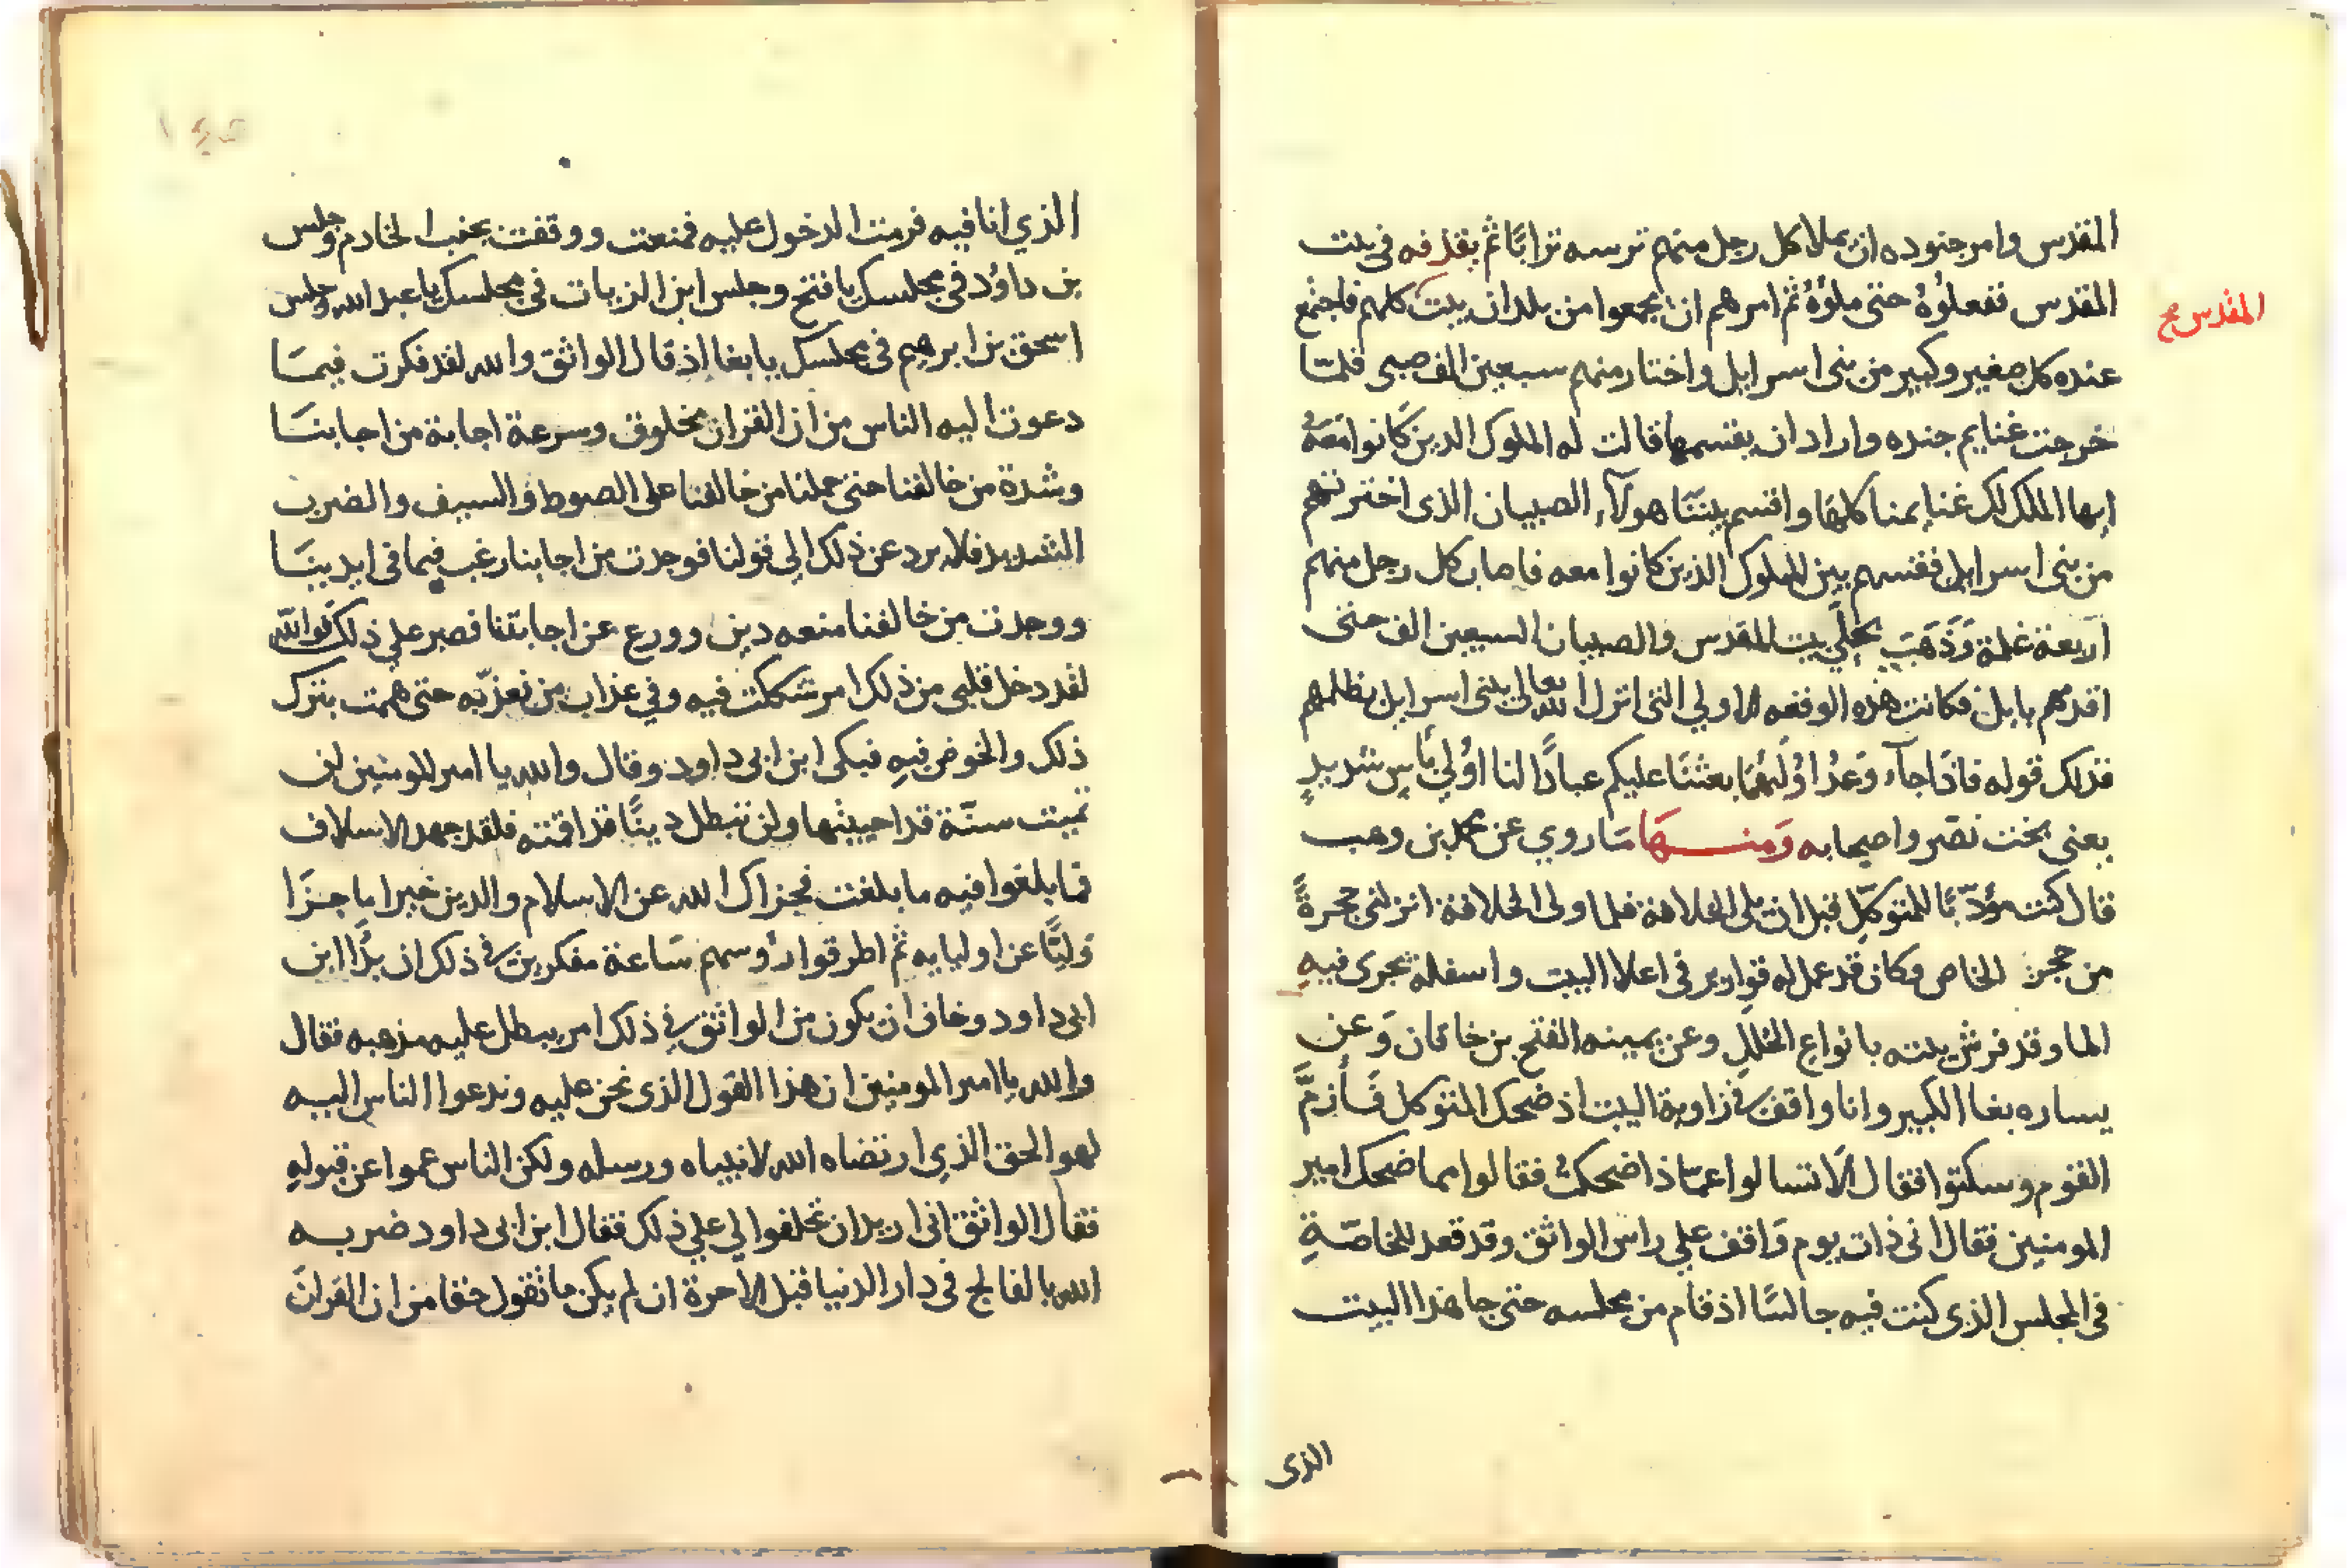 المقدس وامر جنوده ان يملا كل رجل منهم ترسه ترابًا ثم يقذفه في بيت
المقدس ففعلوُهُ حتى ملؤهُ ثم امرهم ان يجمعوا من بلدان بيت كلهم فاجتمع
المقدس صح
عنده كل صغير وكبير من بنى اسرايل واختار منهم سبعين الف صبى فلما
خرجت غنايم جنده واراد ان يقسمها قالت له الملوك الدين كانوا معَهُ
ايها الملك لك غنايمنا كلها واقسم بيننَا هولآء الصبيان الذى اخترتهم
من بنى اسرايل فقسهم بين الملوك الذين كانوا معه فاصاب كل رجل منهم
اربعة غلمة وَذَهَبَ بحُلّي بيت المقدس والصبيان السبعين الف حتى
اقدمهم بابل فكانت هذه الوقعه الاولي التى انزل الله تعالى ببنى اسرايل بظلمهم
فذلك قوله فاذَا جآء وَعدُ اوُلَيهُمَا بعثنَا عليكم عبادًا لنا اوُلي بَاسٍ شديدٍ
يعنى بخت نصّر واصحابه وَمنـهَا مَا روي عن محمد بن وهب
قال كنت مؤدّبًا للمتوكّلِ قبل ان يلى الخلافة فلما ولى الخلافة انزلنى حجرةً
من حجر الخاص وكان قد عمل له قوارير فى اعلا البيت واسفله يجرى فيهِ
الما وقد فرش بيته بانواع الخلل وعن يمينه الفتح بن خاقان وَعن
يساره بغا الكبير وانا واقف في زاوية البيت اذ ضحك المتوكل فَأَرَمَّ
القوم وسكتوا فقال الَا تسالوا عمّا ذا اضحك فقالوا مما ضحك امير
المومنين فقال انى ذات يوم وَاقف علي راس الواثق وقد قعد للخاصّةِ
فى المجلس الذى كنت فيه جالسًا اذ قام من مجلسه حتى جا هذا البيت
الذى
الذي انا فيه فرمت الدخول عليه فمنعت ووقفت بجنب الخادم وجلس
بن داوُد فى مجلسك يا فتح وجلس ابن الزيات فى مجلسك يا عبد الله وجلس
اسحق بن ابرهيم فى مجلسك يا بغا اذ قال الواثق والله لقد فكرت فيمَا
دعوت اليه الناس من ان القران مخلوق وسرعة اجابة من اجابنَا
وشدة من خالفنا حتى حملنا من خالفنا على الصوط والسيف والضرب
الشديد فلا يرد عن ذلك الى قولنا فوجدت من اجابنا رغب فيما فى ايدينَا
ووجدت من خالفنا منعه دين وورع عن اجابتنا فصبر علي ذلك فَواللهِ
لقد دخل قلبى من ذلك امر شككت فيه وفي عذاب من نعذّبه حتى هممت بترك
ذلك والخوض فيهِ فبكى ابن ابى داود وقال والله يا امير المومنين لن
تميت سنّة قد احييتها ولن تبطل دينًا قد اقمته فلقد جهد الاسلاف
فما بلغوا فيه ما بلغت فجزاك الله عن الاسلام والدين خيرا ما جـزَا
وَليًّا عن اوليايه ثم اطرقوا رؤسهم سَاعة مفكرين في ذلك ان بدَا ابن
ابى داود وخاف ان يكون من الواثق في ذلك امر يبطل عليه مذهبه فقال
والله يا امير المومنين ان هذا القول الذى نحن عليه وندعوا الناس اليه
لهو الحق الذي ارتضاه الله لانبياه ورسله ولكن الناس عموا عن قبولهِ
فقال الواثق انى اريد ان تحلفوا لي علي ذلك فقال ابن ابى داود ضربه
الله بالفالج فى دار الدنيا قبل الآخرة ان لم يكن ما تقول حقا من ان القرانَ